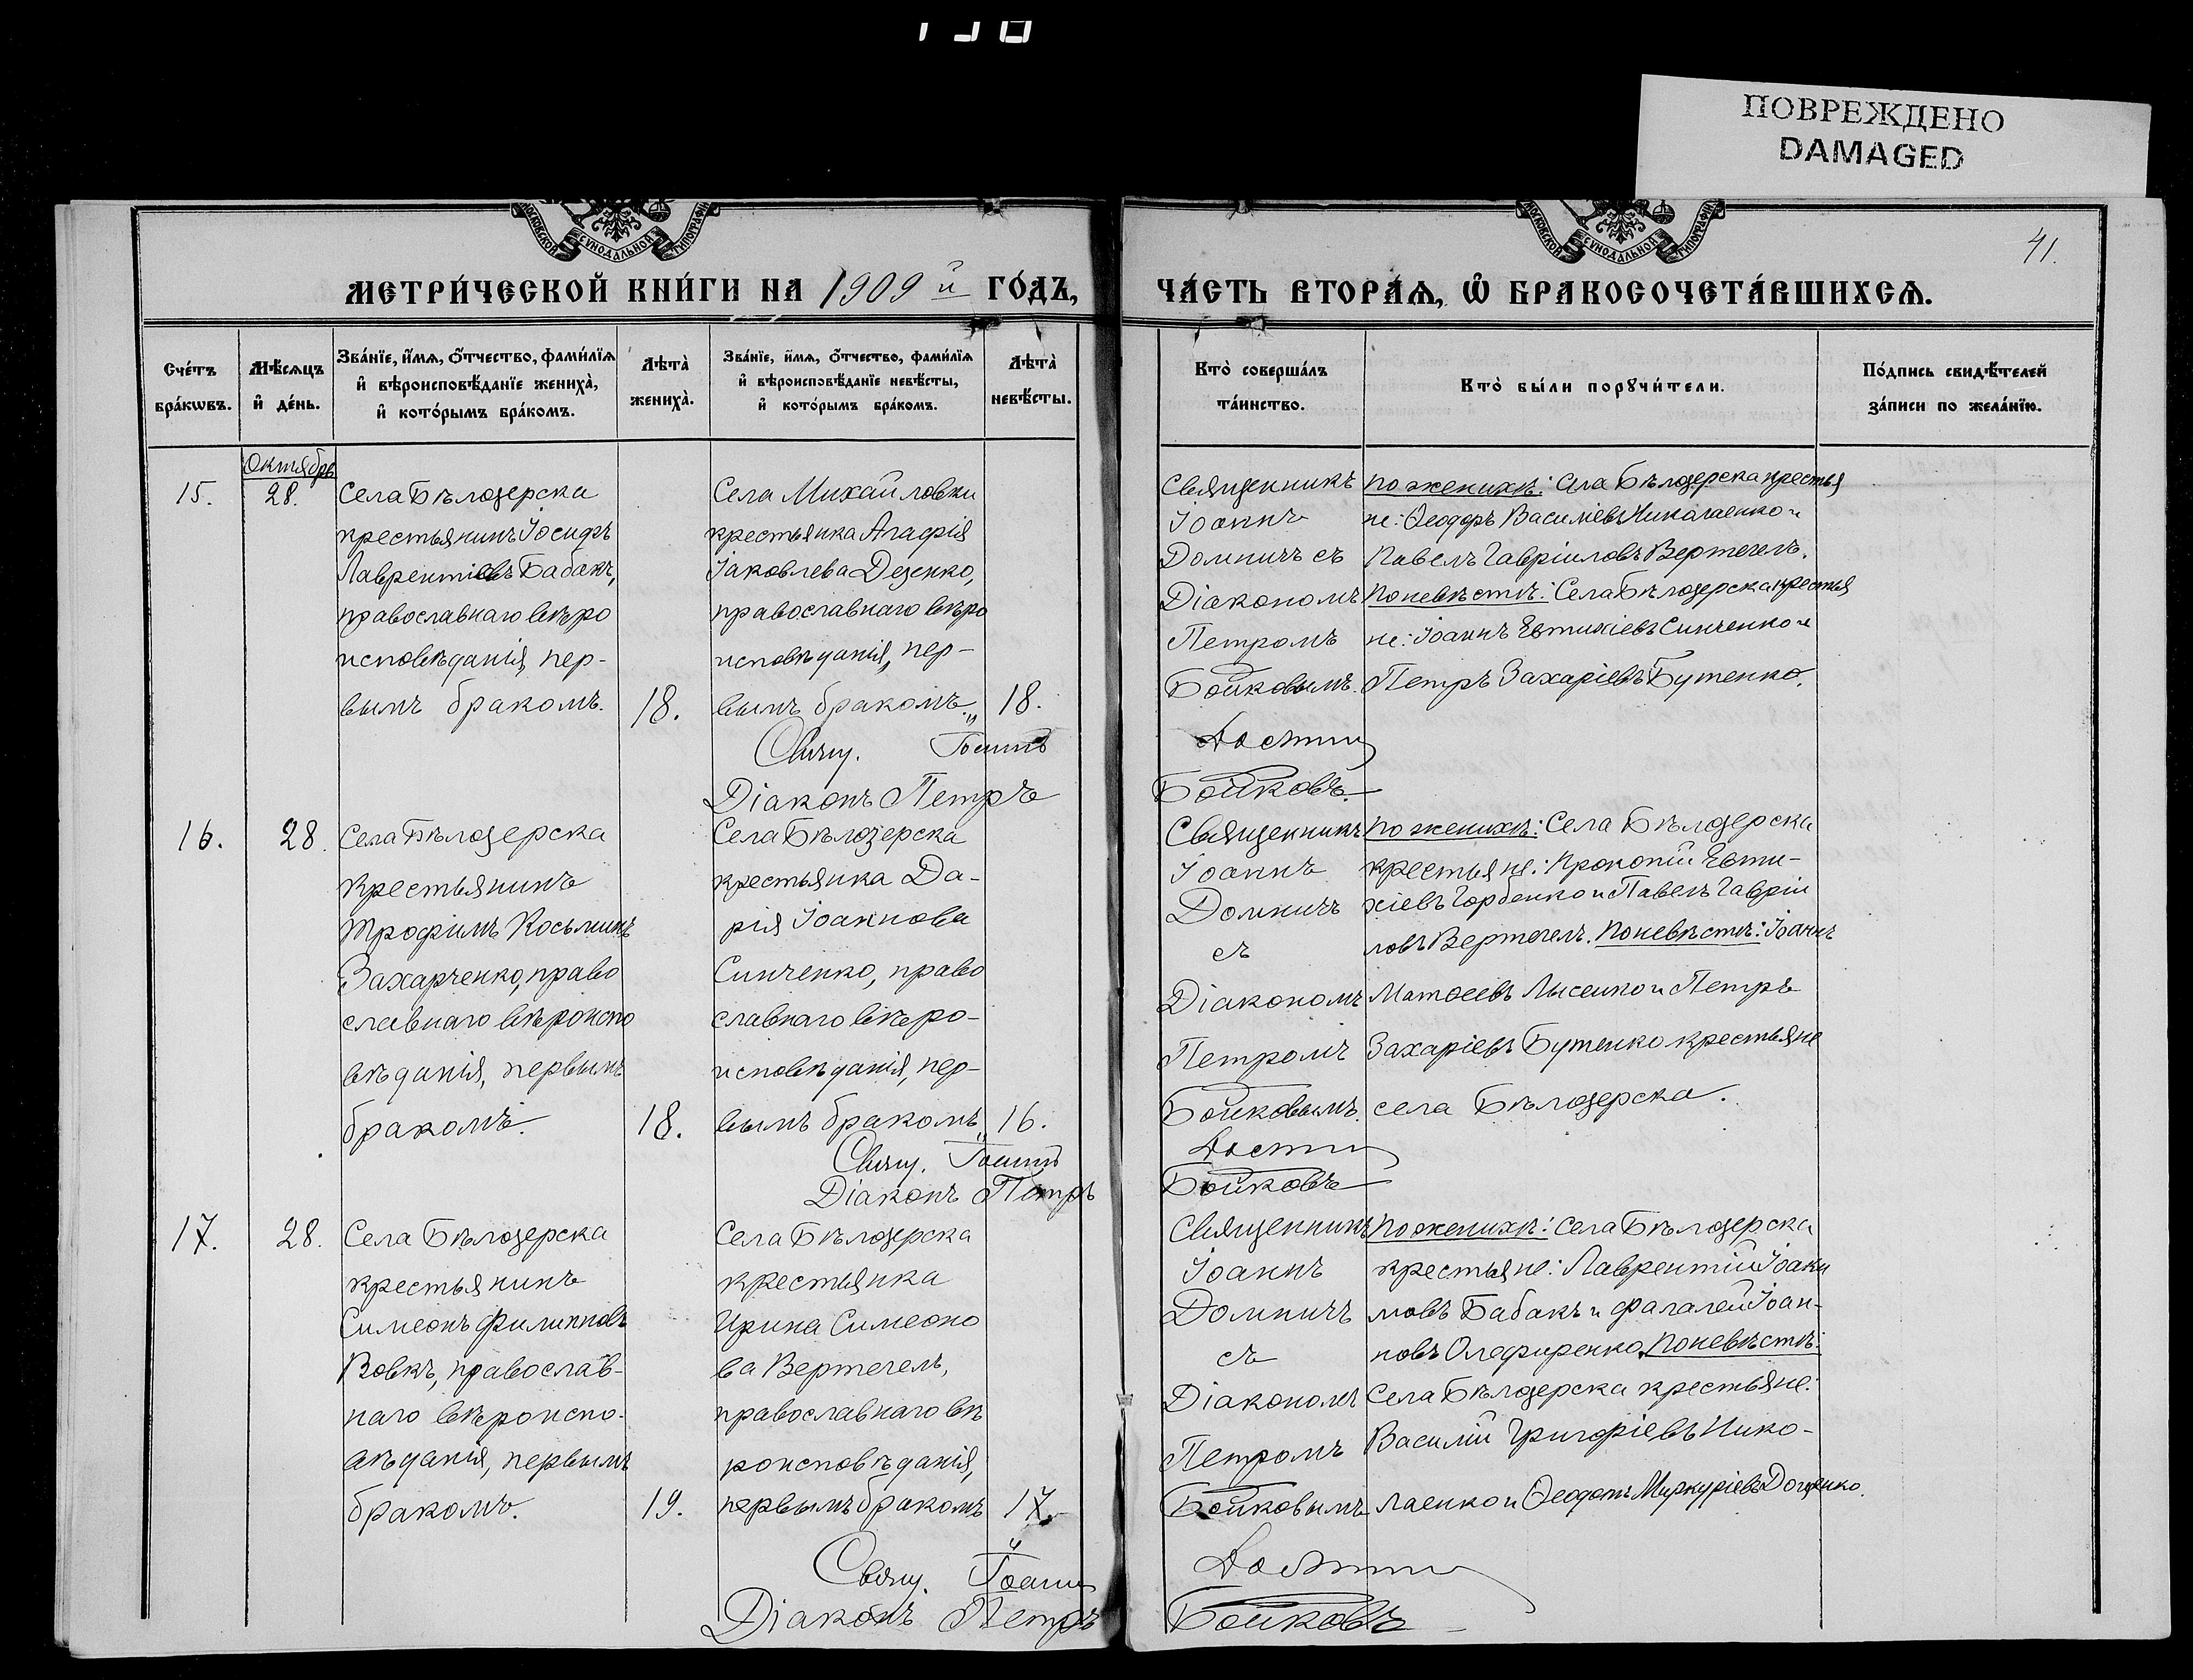 ПОВРЕЖДЕНО
DAMAGED
МОСКОВСКОЙ СѴНОДАЛЬНОЙ ТИПОГРАФІИ
МОСКОВСКОЙ СѴНОДАЛЬНОЙ ТИПОГРАФІИ
41.
МЕТРИ́ЧЕСКОЙ КНИ́ГИ НА 1909 й ГО́ДЪ,
ЧА́СТЬ ВТОРА́Ѧ, Ѽ БРАКОСОЧЕТА́ВШИХСѦ.
Сче́тъ бра́кѡвъ.
Мѣ́сяцъ и҆ де́нь.
Зва́нїе, и҆́мѧ, ѻ҆́тчество, фами́лїѧ
и҆ вѣроисповѣ́данїе жениха̀,
и҆ кото́рымъ бра́комъ.
Лѣта̀ жениха̀.
Зва́нїе, и҆́мѧ, ѻ҆́тчество, фами́лїѧ
и҆ вѣроисповѣ́данїе невѣ́сты,
и҆ кото́рымъ бра́комъ.
Лѣта̀ невѣ́сты.
Кто̀ соверша́лъ та́инство.
Кто̀ бы́ли порꙋчи́тели.
По́дпись свидѣ́телей за́писи по жела́нїю.
Октябрь
15.
28.
Села Бѣлозерска
крестьянинъ Іосифъ
Лаврентіевъ Бабакъ,
православнаго вѣро
исповѣданія, пер-
вымъ бракомъ.
18.
Села Михайловки
крестьянка Агафія
Іаковлева Дезенко,
православнаго вѣро
исповѣданія, пер-
вымъ бракомъ.
18.
Священникъ
Іоаннъ
Домничъ съ
Діакономъ
Петромъ
Бойковымъ.
По женихѣ: Села Бѣлозерска крестья
не: Ѳеодоръ Васильевъ Николаенко и
Павелъ Гавріиловъ Вертегелъ.
По невѣстѣ: Села Бѣлозерска крестья
не: Іоаннъ Евтихіевъ Синченко и
Петръ Захаріевъ Бутенко.
Свящ. Іоаннъ
Діаконъ Петръ Бойковъ.
16.
28.
Села Бѣлозерска
крестьянинъ
Трофимъ Косьминъ
Захарченко, право
славнаго вѣроиспо
вѣданія, первымъ
бракомъ.
18.
Села Бѣлозерска
крестьянка Да-
рія Іоаннова
Синченко, право
славнаго вѣро-
исповѣданія, пер-
вымъ бракомъ
16.
Священникъ
Іоаннъ
Домничъ
съ
Діакономъ
Петромъ
Бойковымъ.
По женихѣ: Села Бѣлозерска
крестьяне: Прокопій Евти-
хіевъ Горбенко и Павелъ Гавріи
ловъ Вертегелъ. По невѣстѣ: Іоаннъ
Матѳеевъ Лысенко и Петръ
Захаріевъ Бутенко крестьяне
села Бѣлозерска.
Свящ. Іоаннъ
Діаконъ Петръ Бойковъ
17.
28.
Села Бѣлозерска
крестьянинъ
Симеонъ Филипповъ
Вовкъ, православ-
наго вѣроиспо-
вѣданія, первымъ
бракомъ.
19.
Села Бѣлозерска
крестьянка
Ирина Симеоно
ва Вертегелъ,
православнаго вѣ
роисповѣданія,
первымъ бракомъ
17.
Священникъ
Іоаннъ
Домничъ
съ
Діакономъ
Петромъ
Бойковымъ
По женихѣ: Села Бѣлозерска
крестьяне: Лаврентій Іоаки
мовъ Бабакъ и Фалалей Іоан-
новъ Олефиренко. По невѣстѣ:
Села Бѣлозерска крестьяне:
Василій Григоріевъ Нико-
лаенко и Ѳеодотъ Меркуріевъ Доценко.
Свящ. Іоаннъ
Діаконъ Петръ Бойковъ